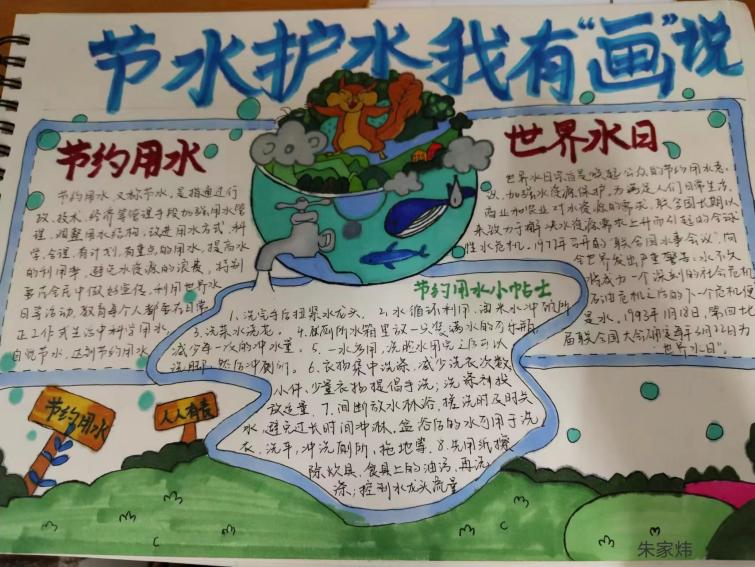 节水护水我有“画”说
节约用水
节约用水，又称节水，是指通过行
政、技术、经济等管理手段加强用水管
理，调整用水结构，改进用水方式，科
学、合理、有计划、有重点的用水，提高水
的利用率，避免水资源的浪费，特别
要在全民中做好宣传，利用世界水
日等活动，教育每个人都要在日常
工作或生活中科学用水，
自觉节水，达到节约用水
世界水日
世界水日宗旨是唤起公众的节约用水意
识，加强水资源保护，为满足人们日常生活、
商业和农业对水资源的需求，联合国长期以
来致力于解决水资源需求上升而引起的全球
性水危机，1977年召开的“联合国水事会议”，向
全世界发出严重警告：水不久
将成为一个深刻的社会危机，
石油危机之后的下一个危机便
是水，1993年1月18日，第四十七
届联合国大会确定每年3月22日为
“世界水日”。
节约用水小帖士
1、洗完手后扭紧水龙头， 2、水循环利用，淘米水冲厕所
3、洗菜水浇花。 4、在厕所水箱里放一只装满水的可乐瓶，
减少每一次的冲水量。 5、一水多用，洗脸水用完之后可以
洗脚，然后冲厕所。 6、衣物集中洗涤，减少洗衣次数
小件、少量衣物提倡手洗；洗涤剂投
放适量。 7、间断放水淋浴，搓洗时及时关
水，避免过长时间冲淋，盆浴后的水可用于洗
衣、洗车，冲洗厕所，拖地等。 8、先用纸擦
除炊具、食具上的油污，再洗
涤；控制水龙头流量
节约用水
人人有责
朱家炜